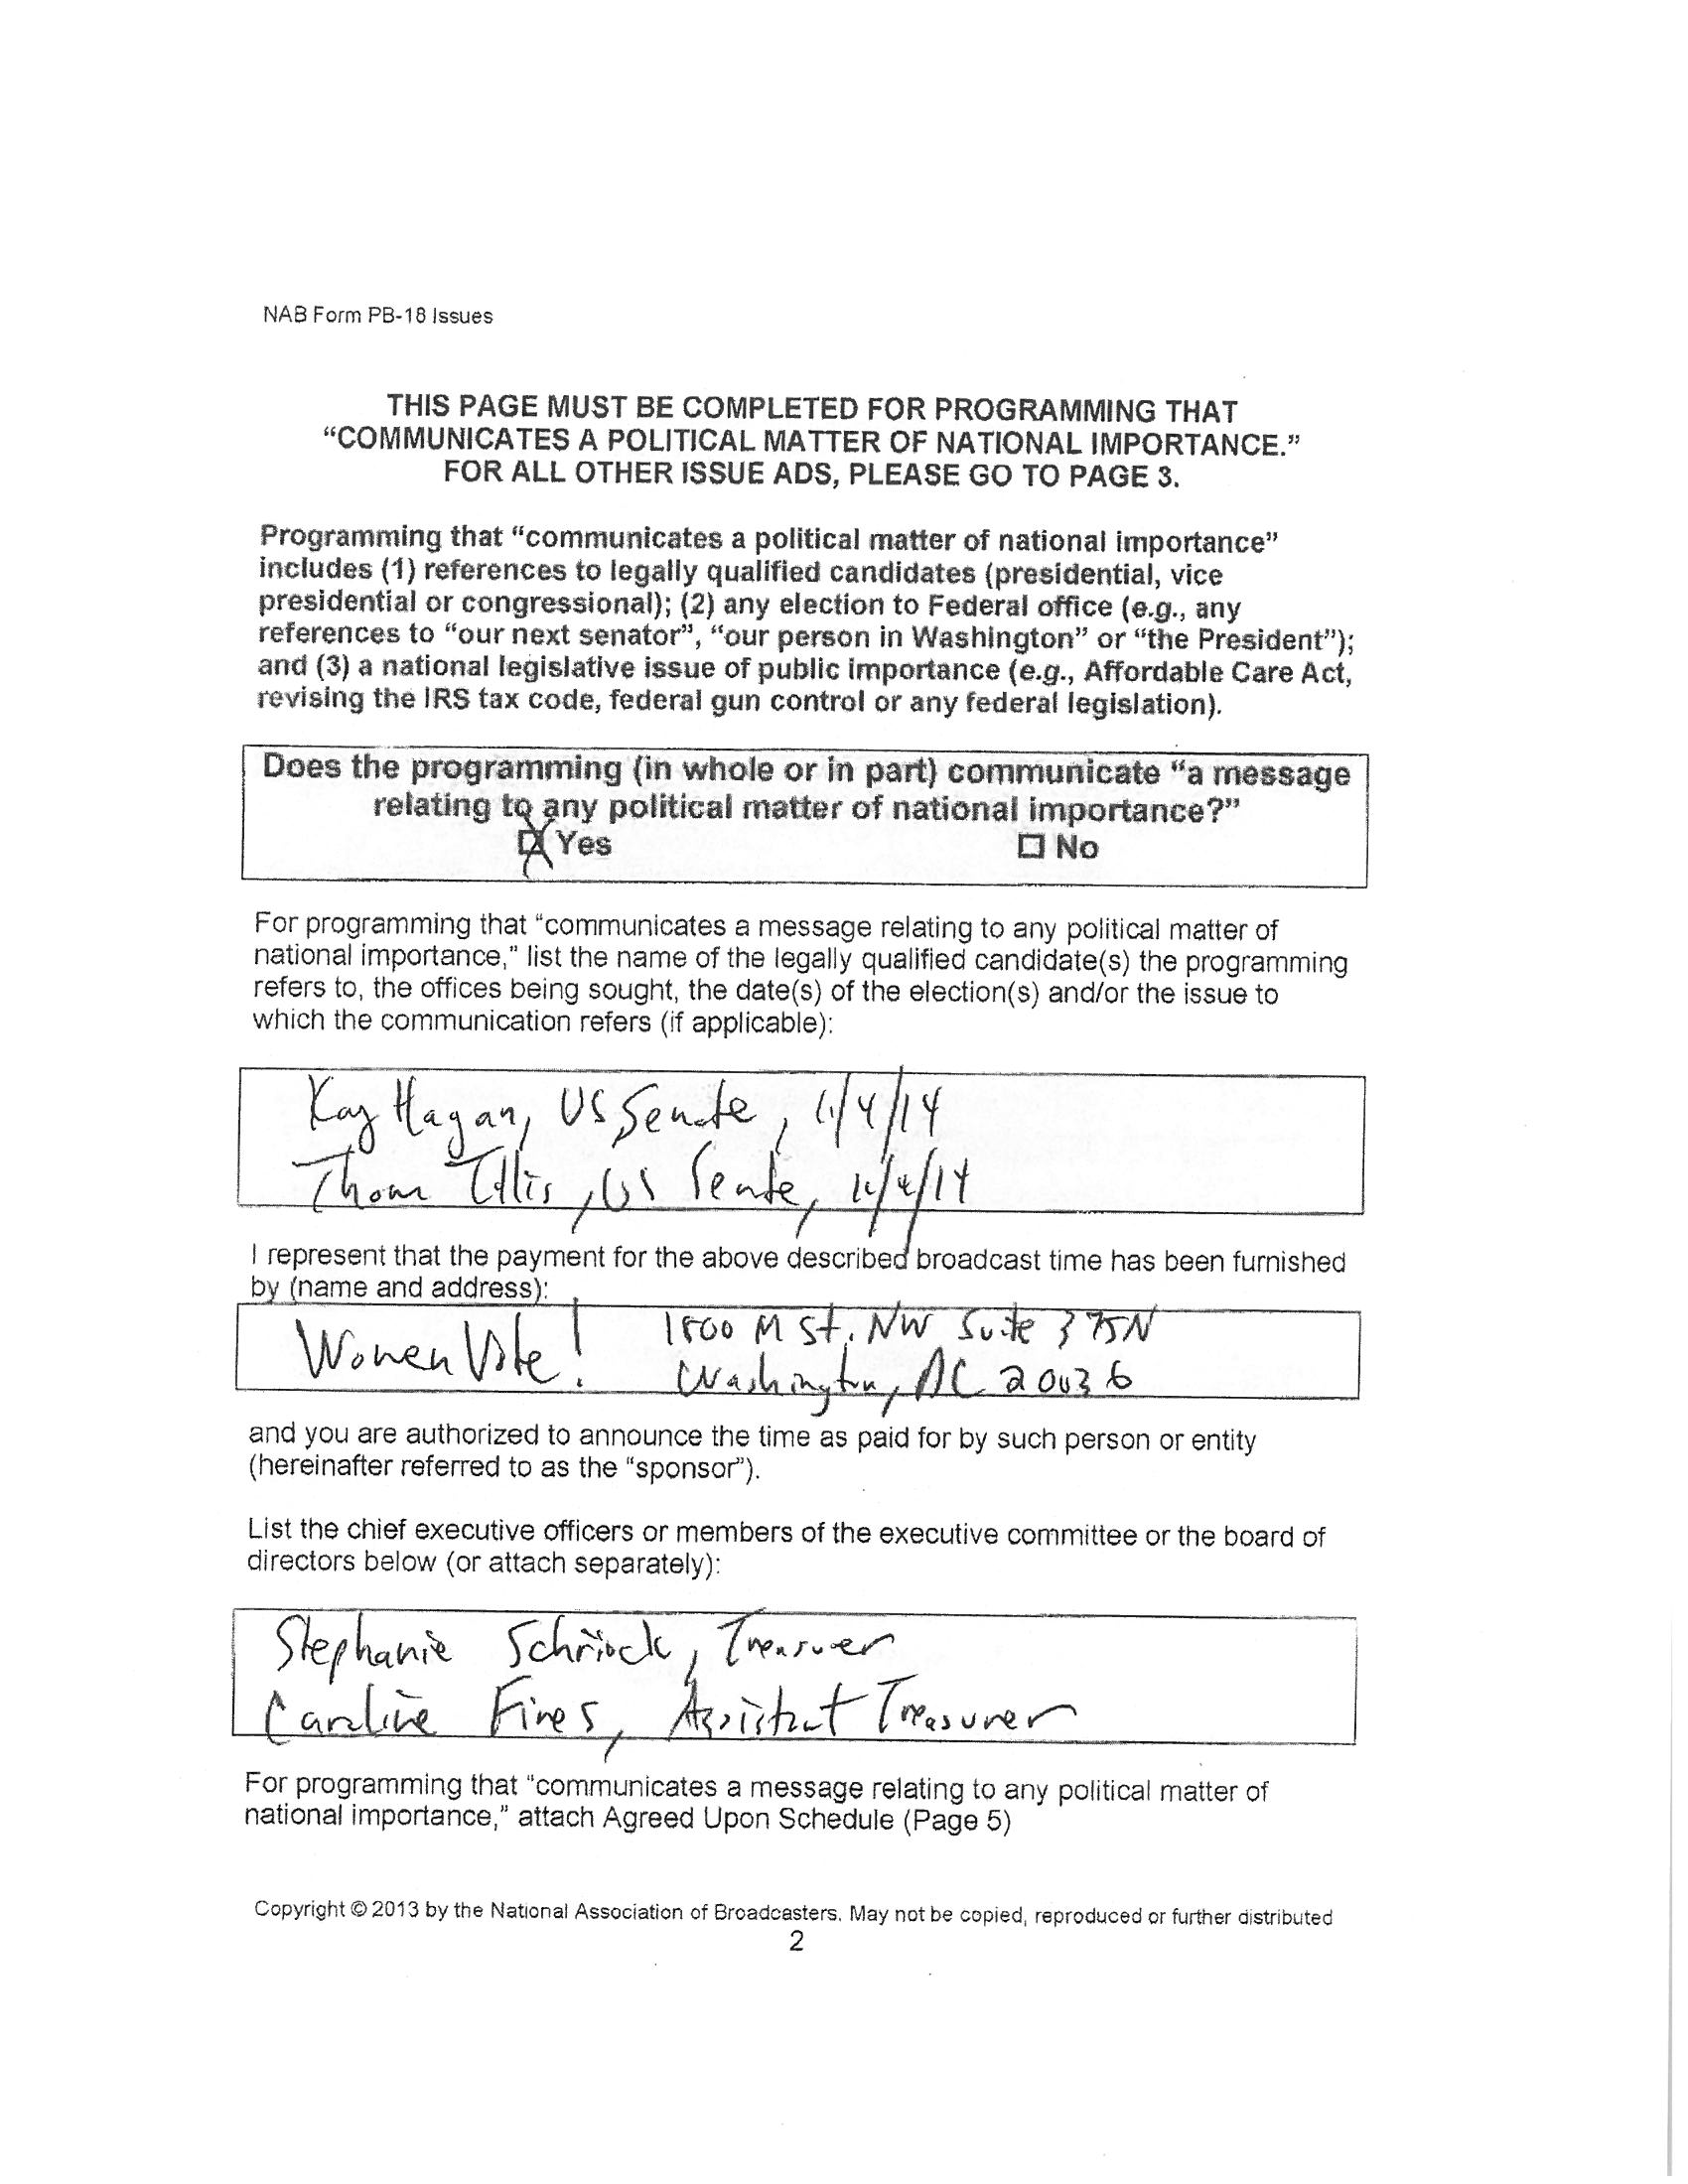 NAB Form PB-18 Issues
THIS PAGE MUST BE COMPLETED FOR PROGRAMMING THAT
“COMMUNICATES A POLITICAL MATTER OF NATIONAL IMPORTANCE.”
FOR ALL OTHER ISSUE ADS, PLEASE GO TO PAGE 3.
Programming that “communicates a political matter of national importance”
includes (1) references to legally qualified candidates (presidential, vice
presidential or congressional); (2) any election to Federal office (e.g., any
references to “our next senator”, “our person in Washington” or “the President”);
and (3) a national legislative issue of public importance (e.g., Affordable Care Act,
revising the IRS tax code, federal gun control or any federal legislation).
Does the programming (in whole or in part) communicate “a message
relating to any political matter of national importance?”
☒ Yes ☐ No
For programming that “communicates a message relating to any political matter of
national importance,” list the name of the legally qualified candidate(s) the programming
refers to, the offices being sought, the date(s) of the election(s) and/or the issue to
which the communication refers (if applicable):
Kay Hagan, US Senate, 11/4/14
Thom Tillis, US Senate, 11/4/14
I represent that the payment for the above described broadcast time has been furnished
by (name and address):
Women Vote! 1800 M St. NW Suite 375N
Washington, DC 20036
and you are authorized to announce the time as paid for by such person or entity
(hereinafter referred to as the “sponsor”).
List the chief executive officers or members of the executive committee or the board of
directors below (or attach separately):
Stephanie Schriock, Treasurer
Caroline Fines, Assistant Treasurer
For programming that “communicates a message relating to any political matter of
national importance,” attach Agreed Upon Schedule (Page 5)
Copyright © 2013 by the National Association of Broadcasters. May not be copied, reproduced or further distributed
2